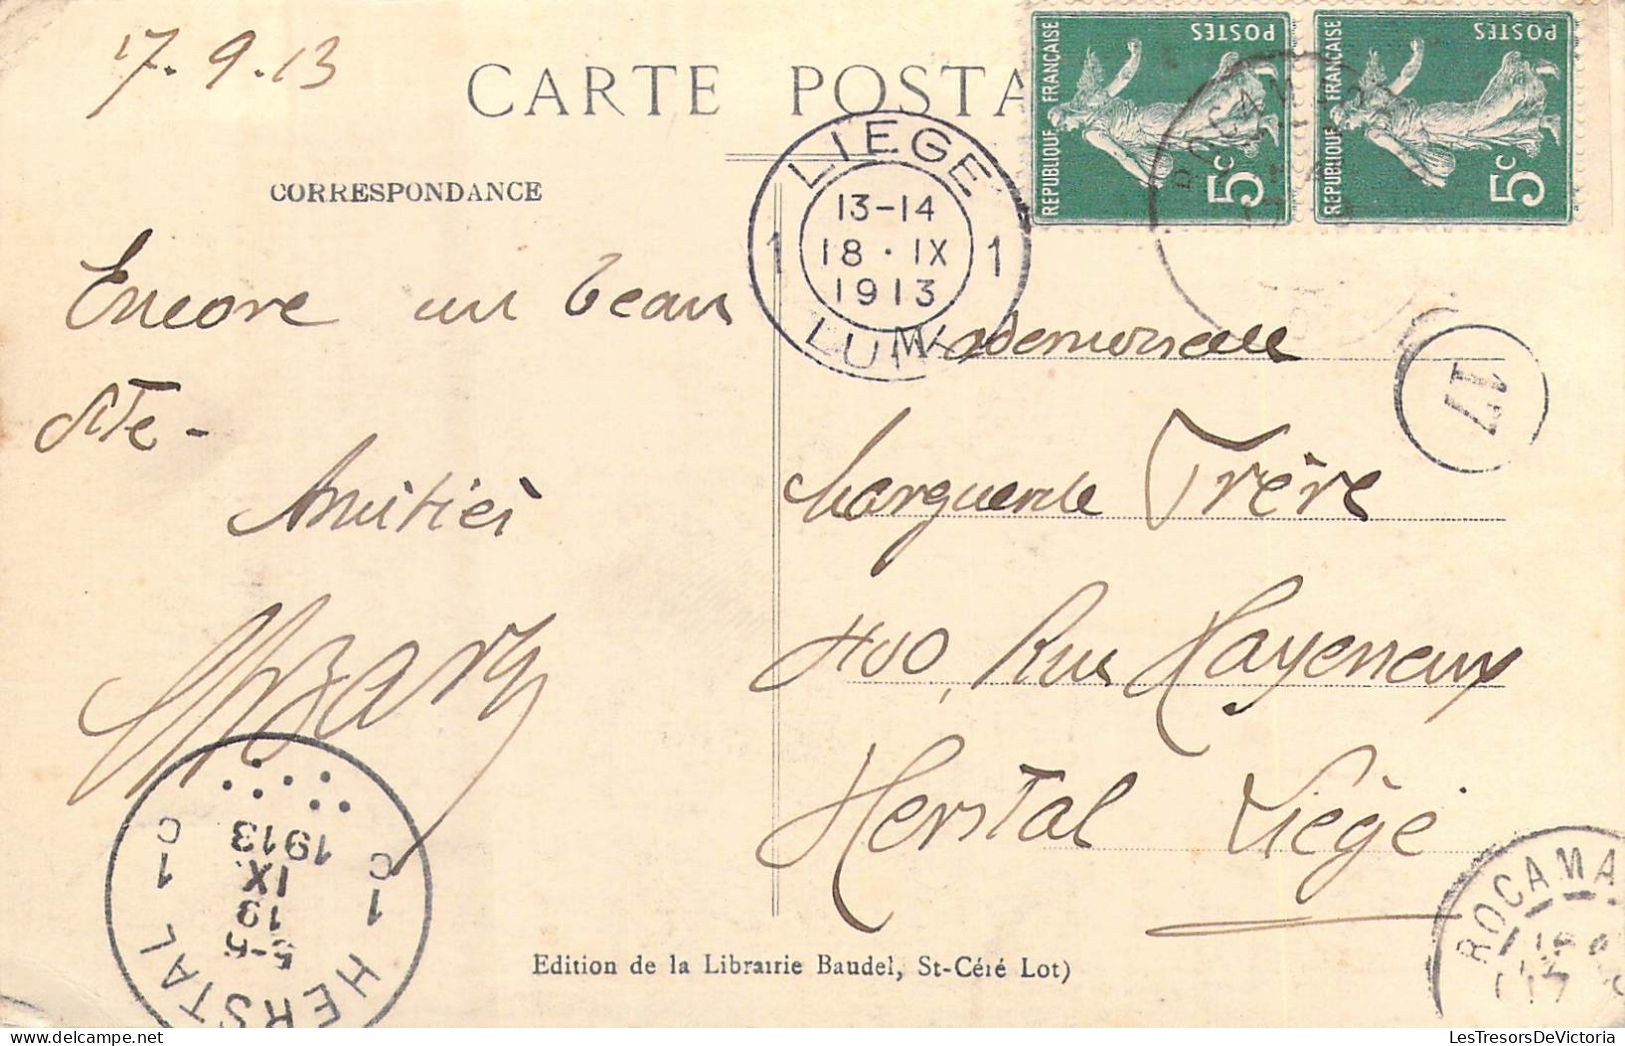 17.9.13
CARTE POSTA
CORRESPONDANCE
REPUBLIQUE FRANÇAISE
POSTES
5c
REPUBLIQUE FRANÇAISE
POSTES
5c
LIEGE
13-14
1 18 · IX 1
1913
LUIK
17
Encore un beau
site -
Amitiés
Mademoiselle
Marguerite Frère
400, Rue Hayeneux
Herstal Liège
HERSTAL
1913
IX
19
5-6
C 1 C 1
ROCAMA
Edition de la Librairie Baudel, St-Céré Lot)
LesTresorsDeVictoria.com